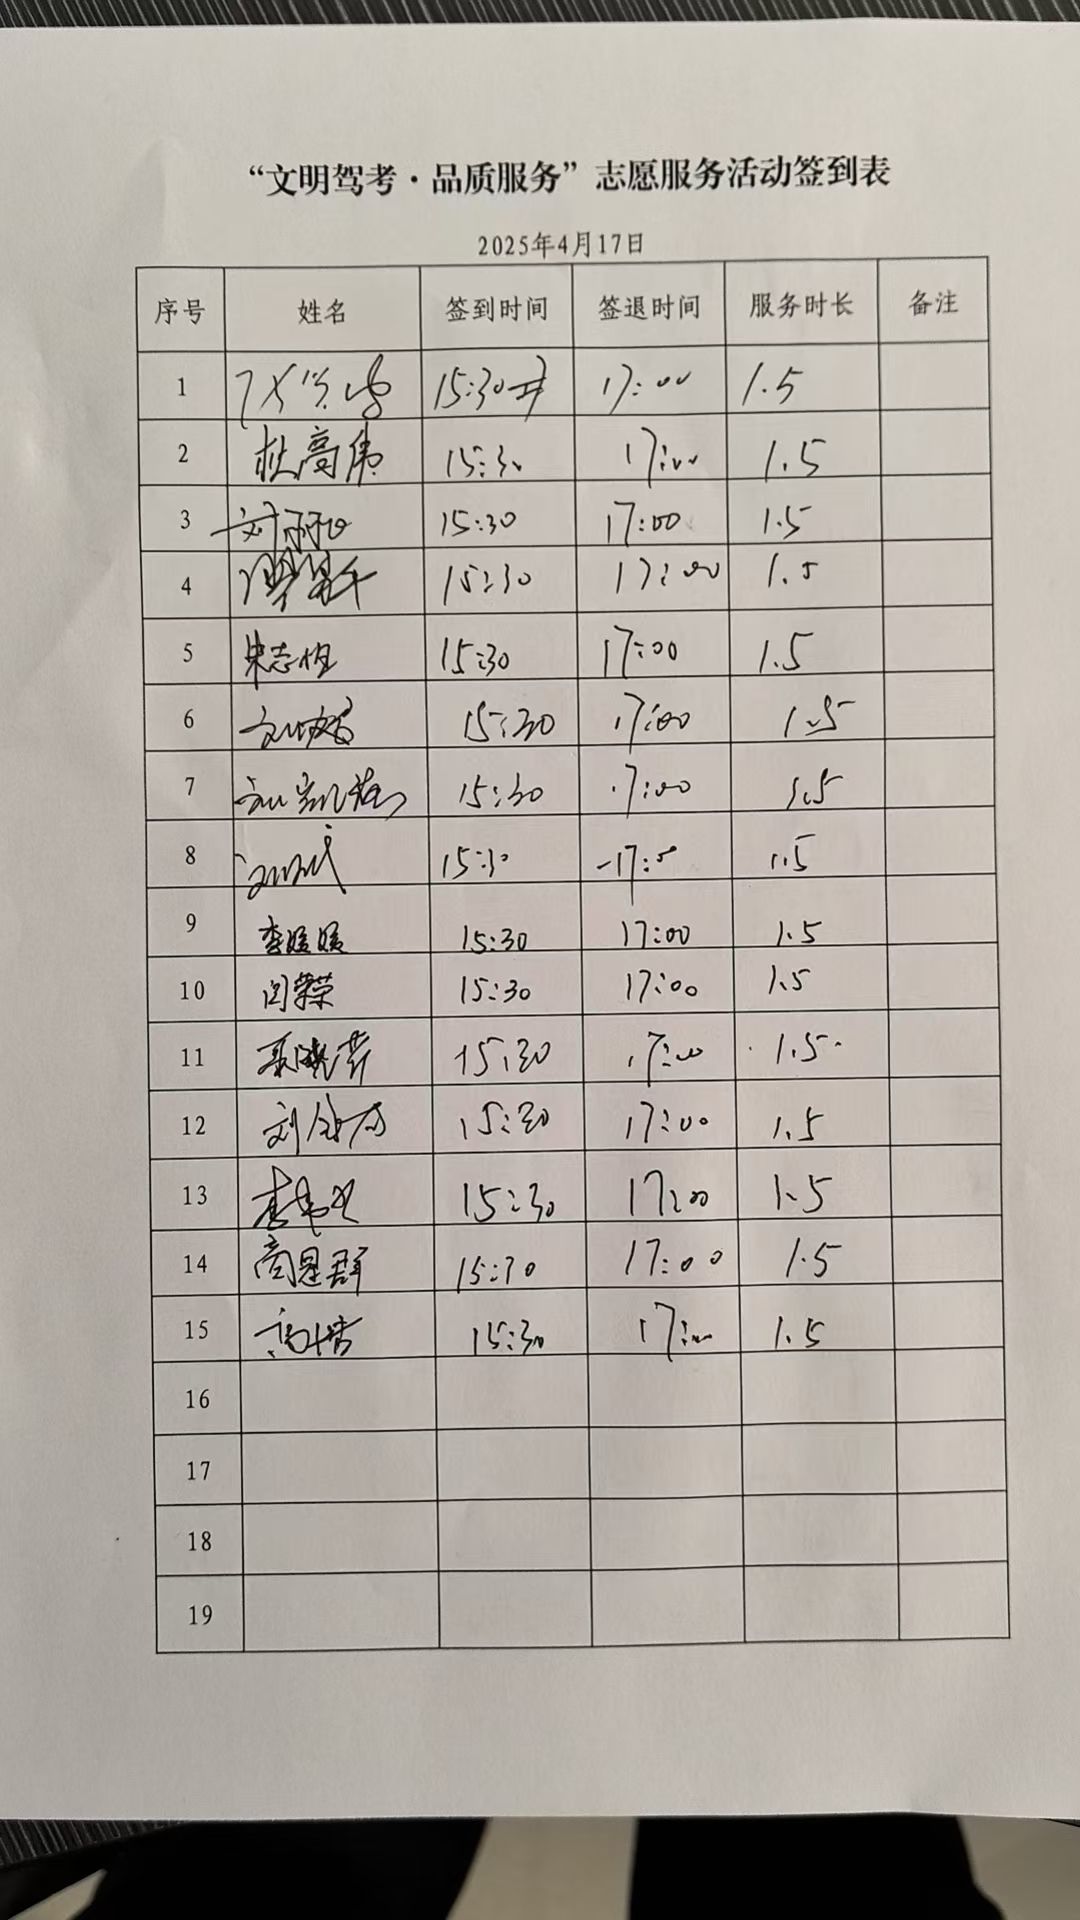 “文明驾考·品质服务”志愿服务活动签到表
2025年4月17日
序号 姓名 签到时间 签退时间 服务时长 备注
1 15:30 17:00 1.5
2 杜高伟 15:30 17:00 1.5
3 15:30 17:00 1.5
4 15:30 17:00 1.5
5 朱志恒 15:30 17:00 1.5
6 15:30 17:00 1.5
7 15:30 17:00 1.5
8 15:30 17:0 1.5
9 李媛媛 15:30 17:00 1.5
10 闫荣荣 15:30 17:00 1.5
11 聂晓芳 15:30 17:00 1.5
12 15:30 17:00 1.5
13 15:30 17:00 1.5
14 商思群 15:30 17:00 1.5
15 15:30 17:00 1.5
16
17
18
19